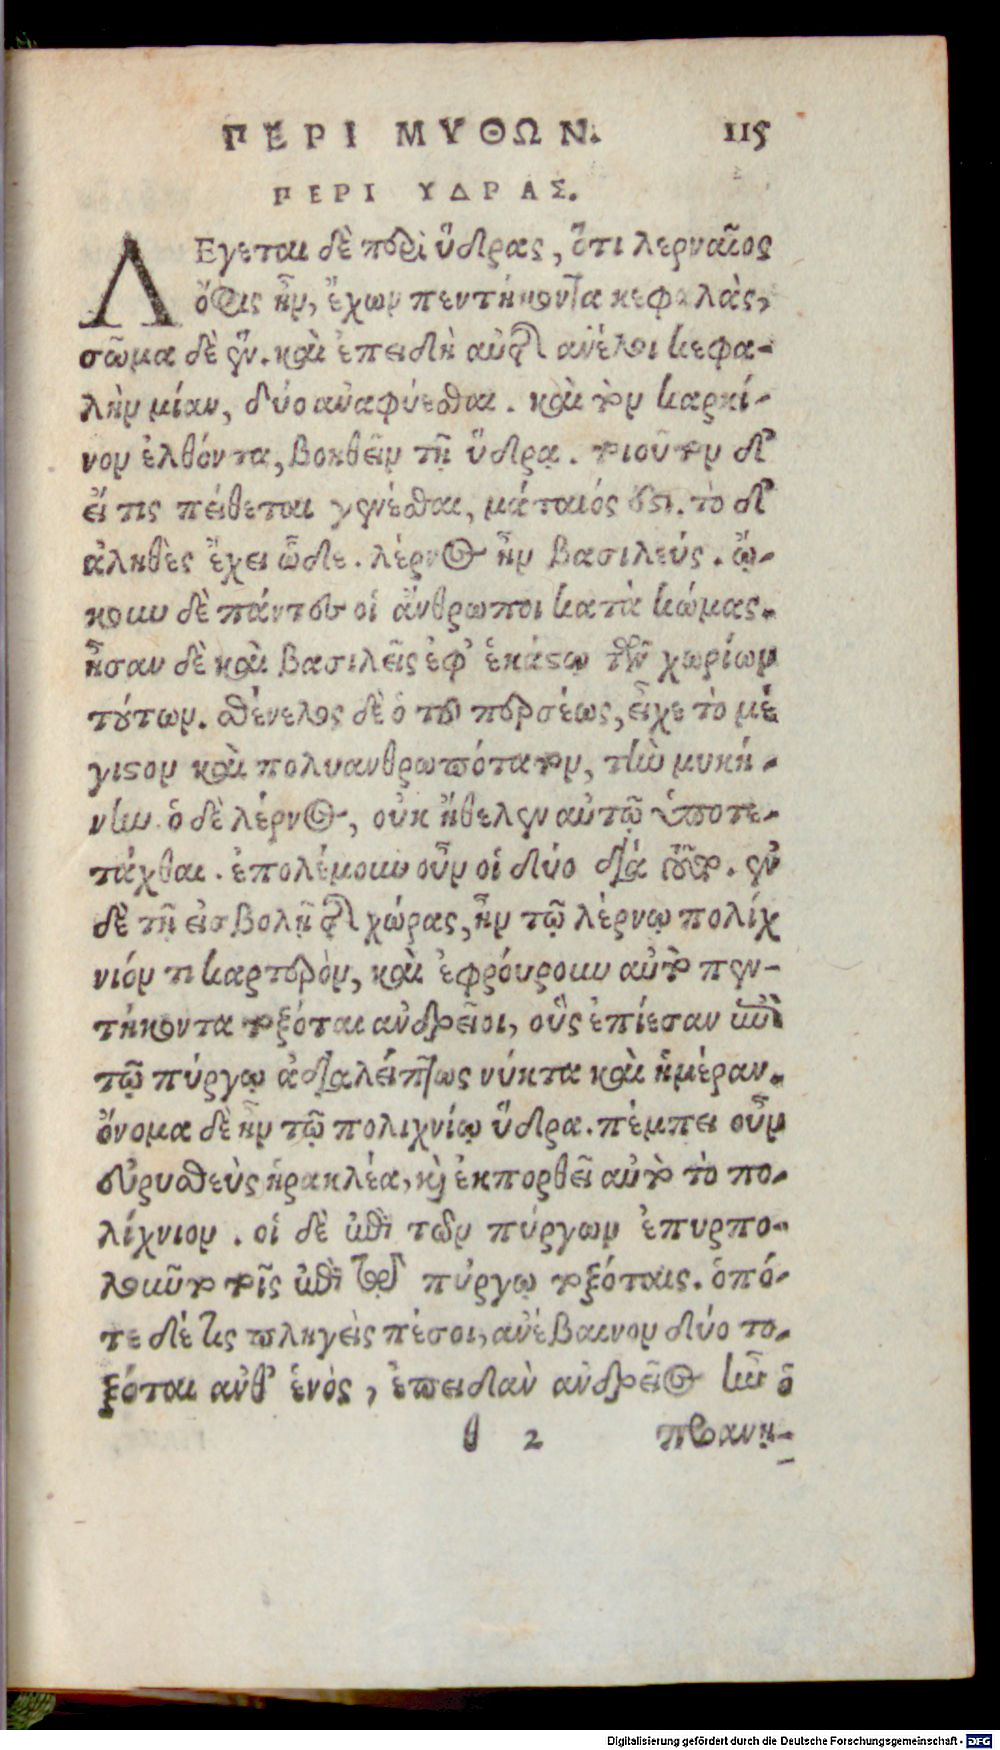 ΠΕΡΙ ΜΥΘΩΝ. 115
ΠΕΡΙ ΥΔΡΑΣ.
ΛΕγεται δὲ περὶ ὕδρας, ὅτι λερναῖος
ὄφις ἦν, ἔχων πεντήκοντα κεφαλὰς,
σῶμα δὲ ἕν. καὶ ἐπειδὴ αὐτῆς ἀνέλοι κεφα-
λὴν μίαν, δύο ἀναφύεσθαι. καὶ τὸν καρκί-
νον ἐλθόντα, βοηθεῖν τῇ ὕδρᾳ. τοιοῦτον δ'
εἴ τις πείθεται γενέσθαι, μάταιός ἐστι. τὸ δ'
ἀληθὲς ἔχει ὧδε. λέρνος ἦν βασιλεύς. ᾤ-
κουν δὲ πάντες οἱ ἄνθρωποι κατὰ κώμας.
ἦσαν δὲ καὶ βασιλεῖς ἐφ' ἑκάστῳ τῶν χωρίων
τούτων. σθένελος δὲ ὁ τοῦ περσέως, εἶχε τὸ μέ
γιστον καὶ πολυανθρωπότατον, τὴν μυκή-
νην. ὁ δὲ λέρνος, οὐκ ἤθελεν αὐτῷ ὑποτε-
τάχθαι. ἐπολέμουν οὖν οἱ δύο διὰ τοῦτο. ἐν
δὲ τῇ εἰσβολῇ τῆς χώρας, ἦν τῷ λέρνῳ πολίχ
νιόν τι καρτερὸν, καὶ ἐφρούρουν αὐτὸ πεν-
τήκοντα τοξόται ἀνδρεῖοι, οὓς ἐπίεσαν ἐπὶ
τῷ πύργῳ ἀδιαλείπτως νύκτα καὶ ἡμέραν.
ὄνομα δὲ ἦν τῷ πολιχνίῳ ὕδρα. πέμπει οὖν
εὐρυσθεὺς ἡρακλέα, καὶ ἐκπορθεῖ αὐτὸ τὸ πο-
λίχνιον. οἱ δὲ ἐπὶ τῶν πύργων ἐπυρπο-
λοῦντο τοῖς ἐπὶ τῷ πύργῳ τοξόταις. ὁπό-
τε δέ τις πληγεὶς πέσοι, ἀνέβαινον δύο το-
ξόται ἀνθ' ἑνὸς, ἐπειδὰν ἀνδρεῖος ἦν ὁ
θ 2 προανῃ-
Digitalisierung gefördert durch die Deutsche Forschungsgemeinschaft - DFG